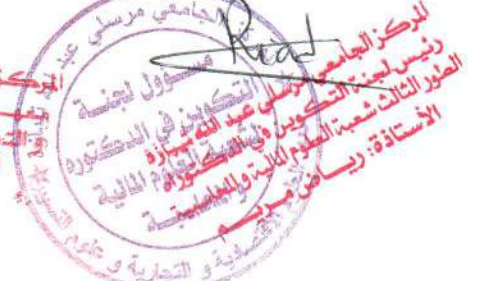 Riad
المركز الجامعي مرسلي عبد الله تيبازة
رئيس لجنة التكوين في الدكتوراه
الطور الثالث شعبة العلوم المالية والمحاسبية
الأستاذة: ريـــاض مريـــم
مسؤول لجنة
التكوين في الدكتوراه
لشعبة العلوم المالية
والمحاسبية
الجامعي مرسلي عبد
الاقتصادية و التجارية و علوم التسيير